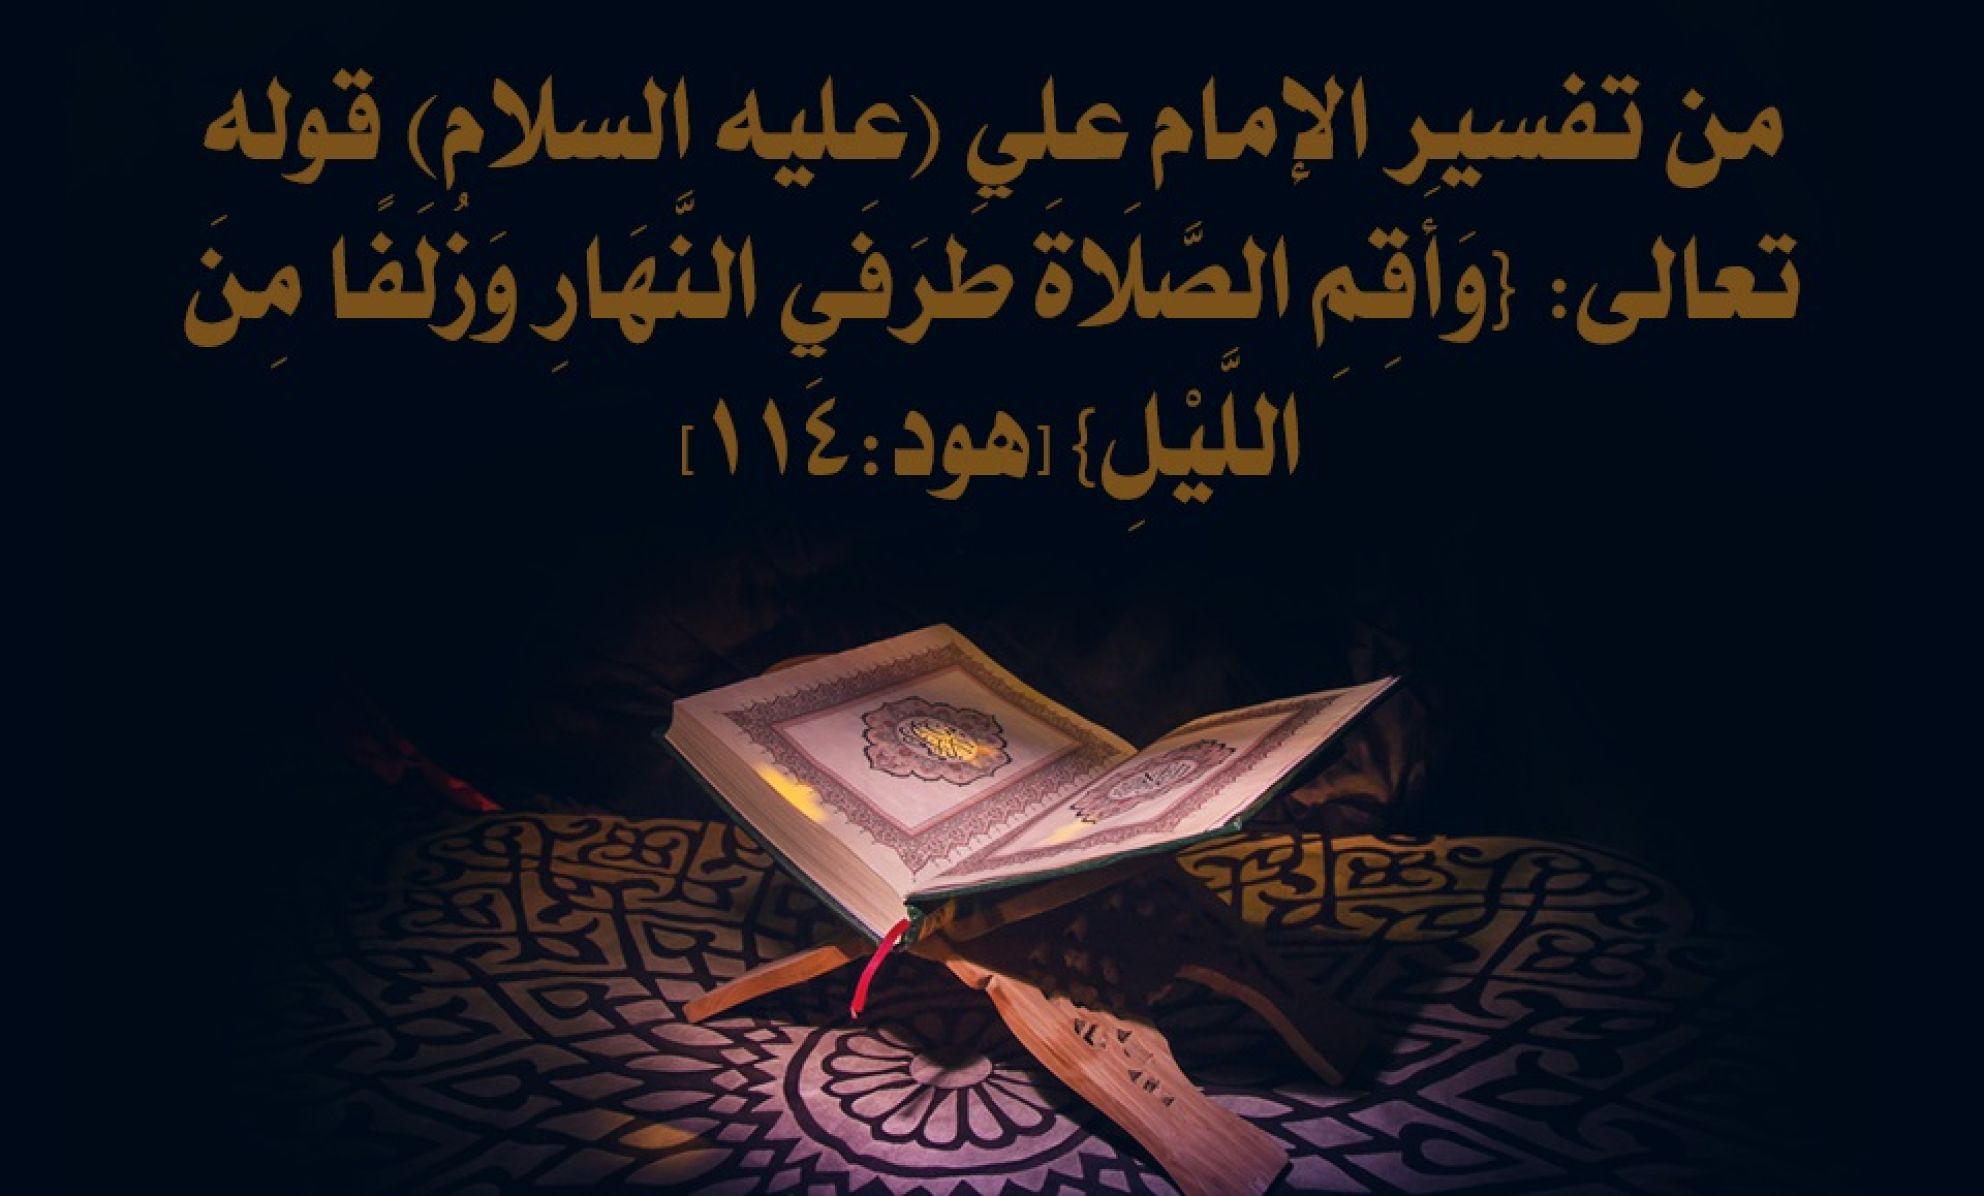 من تفسير الإمام علي (عليه السلام) قوله
تعالى: {وَأَقِمِ الصَّلَاةَ طَرَفَيِ النَّهَارِ وَزُلَفًا مِنَ
اللَّيْلِ} [هود:١١٤]